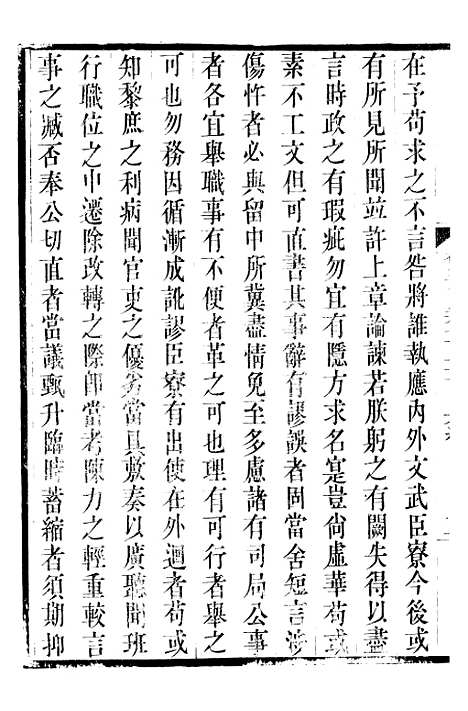 在予苟求之不言咎將誰執應內外文武臣寮今後或
有所見所聞竝許上章論諫若朕躬之有闕失得以盡
言時政之有瑕疵勿宜有隱方求名寔豈尙虛華苟或
素不工文但可直書其事辭有謬誤者固當舍短言涉
傷忤者必與留中所冀盡情免至多慮諸有司局公事
者各宜舉職事有不便者革之可也理有可行者舉之
可也勿務因循漸成訛謬臣寮有出使在外迴者苟或
知黎庶之利病聞官吏之優劣當具敷奏以廣聽聞班
行職位之中遷除改轉之際卽當考陳力之輕重較言
事之臧否奉公切直者當議甄升臨時蓄縮者須期抑